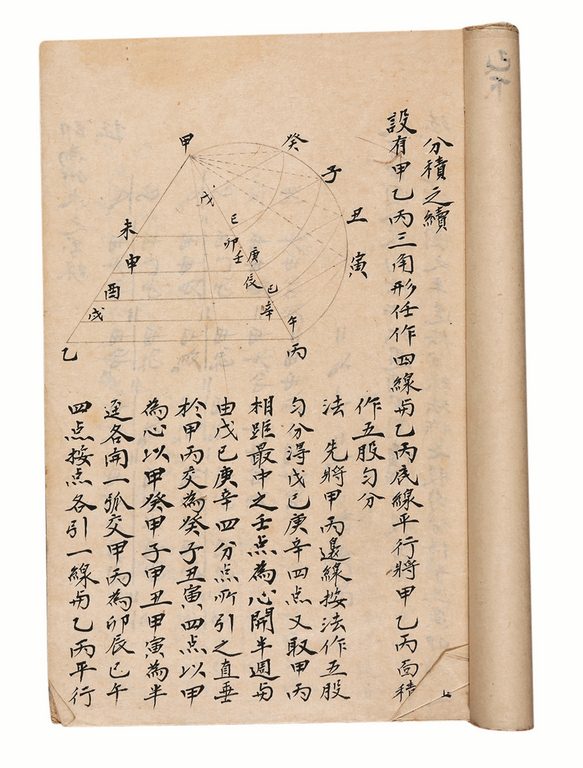 分積之續
設有甲乙丙三角形任作四線与乙丙底線平行將甲乙丙面積
作五股勻分
法　先將甲丙邊線按法作五股
勻分得戊已庚辛四点又取甲丙
相距最中之壬点為心開半週与
由戊已庚辛四分点所引之直垂
於甲丙交為癸子丑寅四点以甲
為心以甲癸甲子甲丑甲寅為半
徑各開一弧交甲丙為卯辰已午
四点按点各引一線与乙丙平行
甲
癸
子
丑
寅
戊
已
卯
壬
庚
辰
已
辛
午
丙
未
申
酉
戌
乙